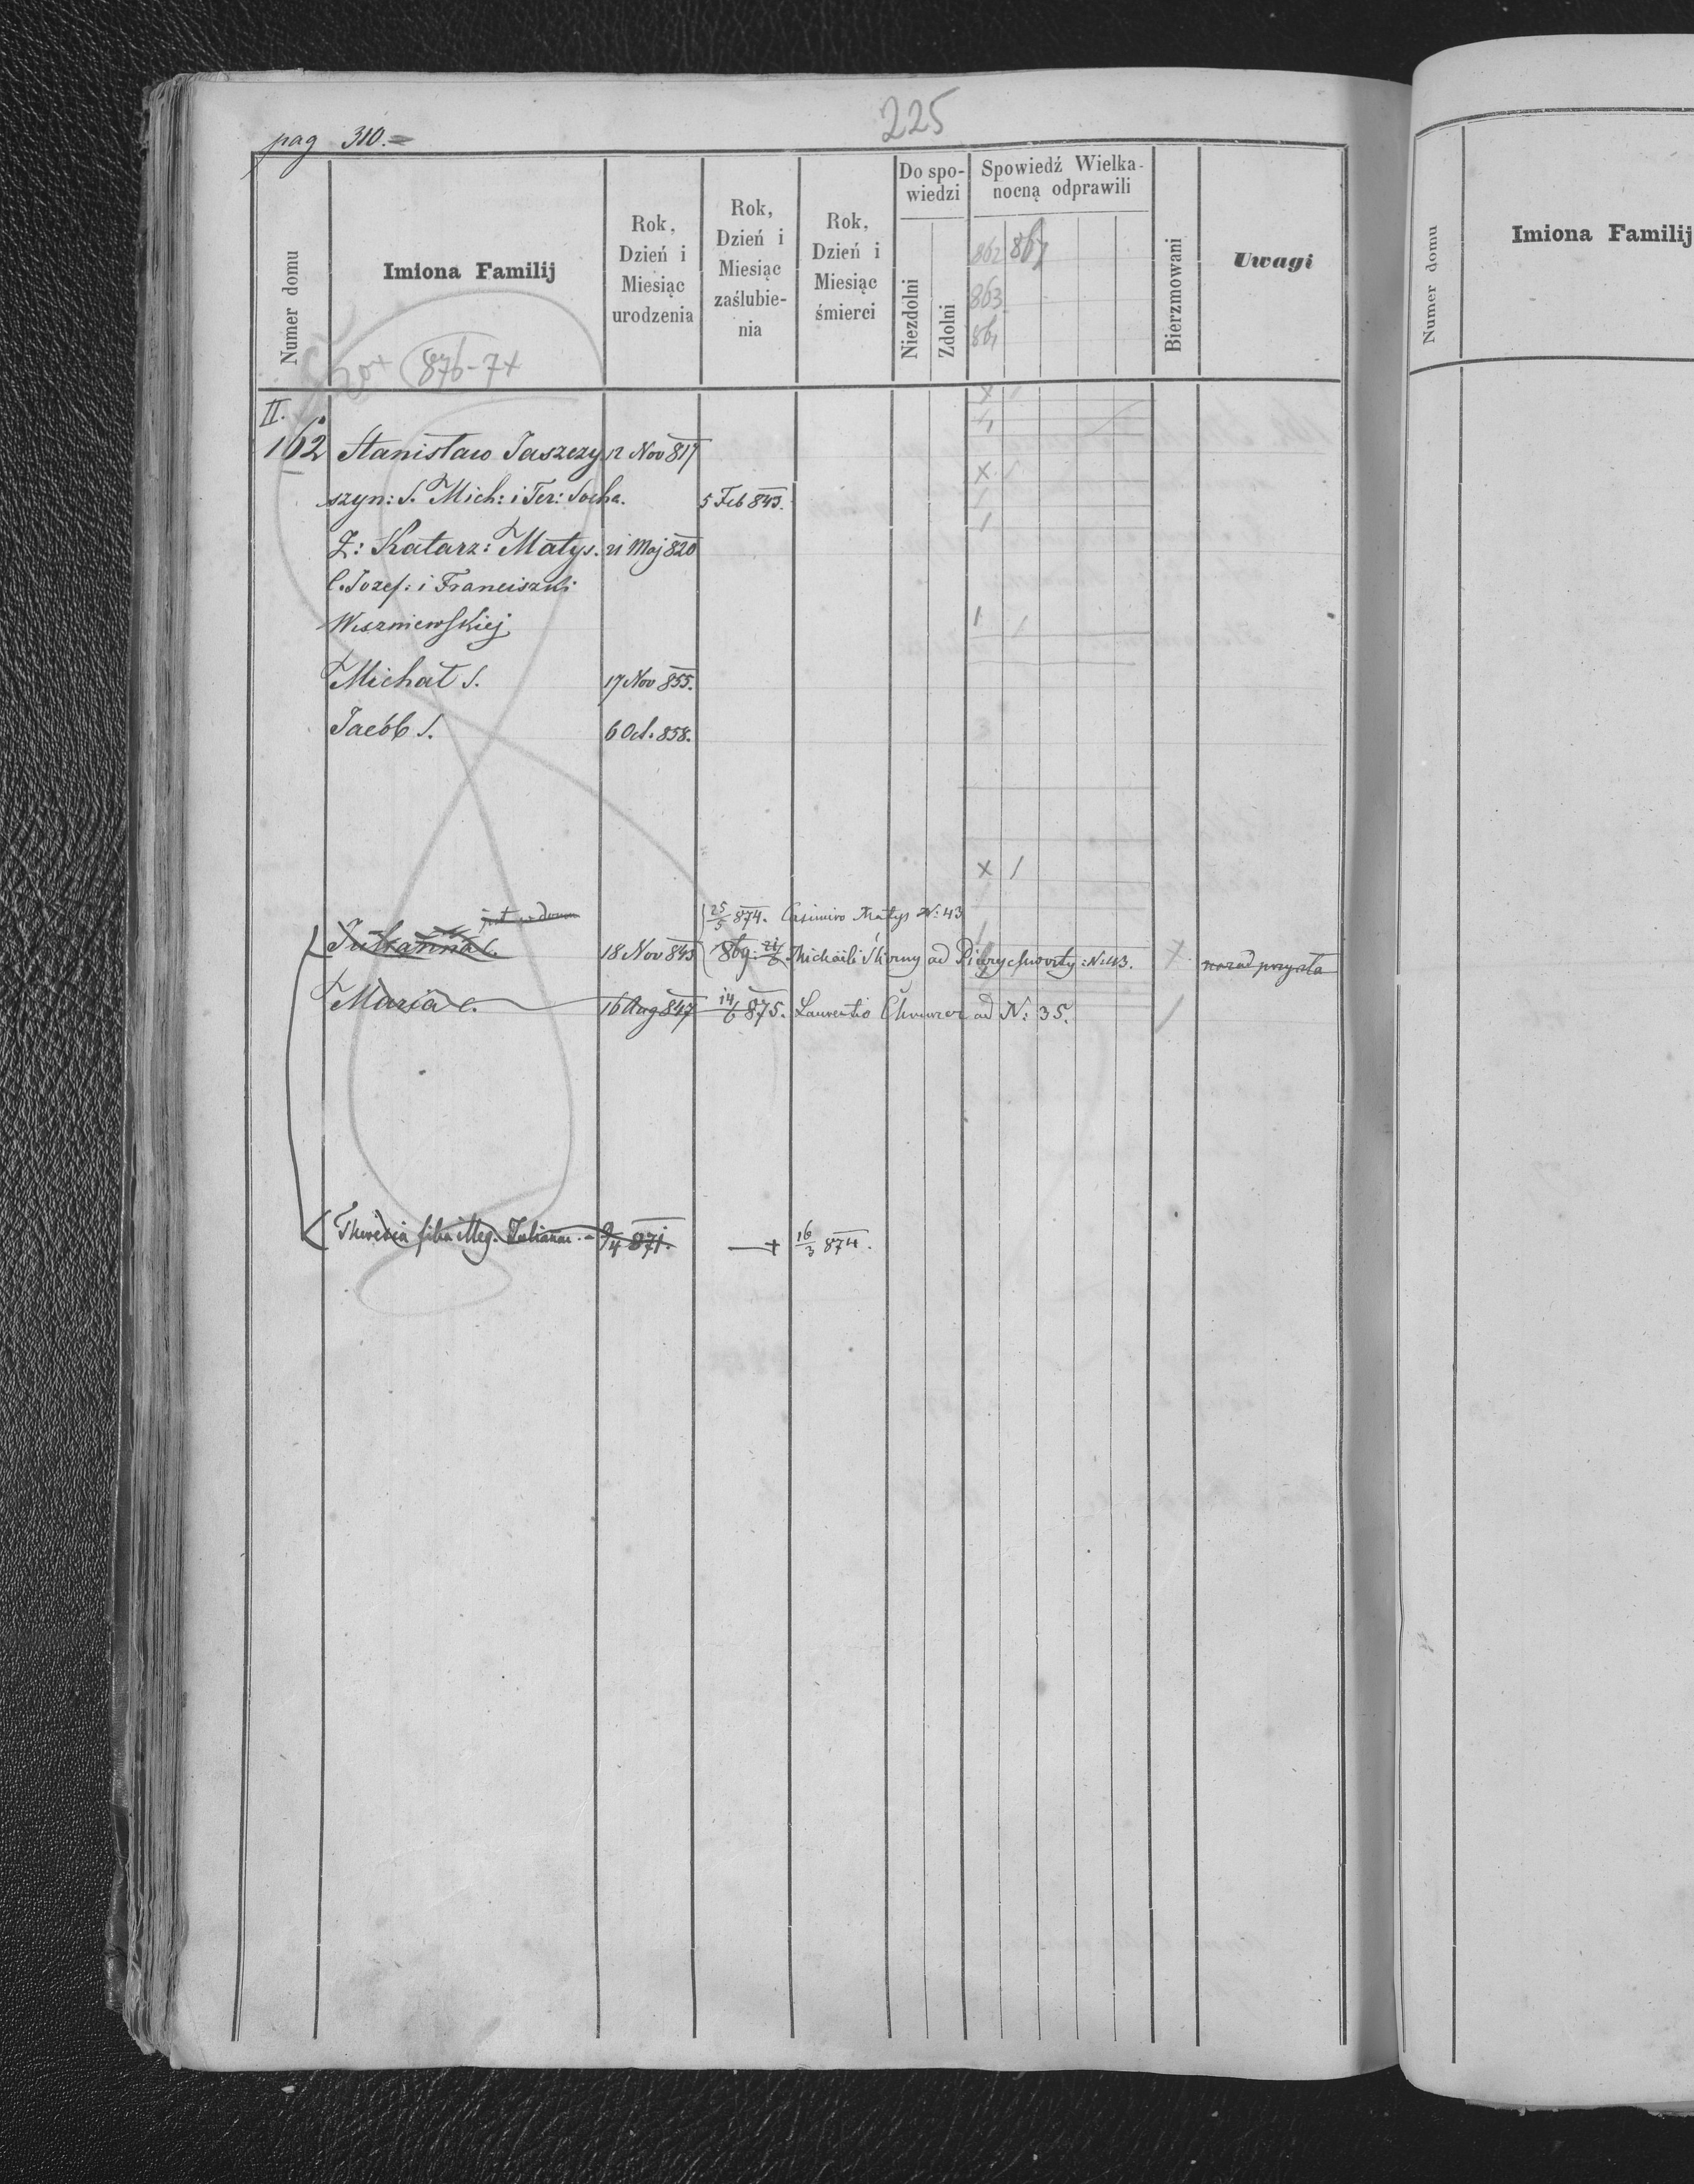 pag 310.=
225
Numer domu
Imiona Familij
Rok, Dzień i Miesiąc urodzenia
Rok, Dzień i Miesiąc zaślubie-nia
Rok, Dzień i Miesiąc śmierci
Do spo-wiedzi
Niezdolni
Zdolni
Spowiedź Wielka-nocną odprawili
862 867
863
864
Bierzmowani
Uwagi
876-7+
II.
162 Stanisław Jaszczy 12 Nov 817
szyn: S. Mich: i Ter: Socha. 5 Feb 843.
Ż: Katarz: Matys. 21 Maj 820
C. Jozef: i Franciszki
Wiszniewskiej
Michał S. 17 Nov 855.
Jacób S. 6 Oct. 858.
25/5 874. Casimiro Matys N: 43
Julianna C. 18 Nov 843 869. 21/6 Michaili Skorny ad N: 43.
Maria C. 16 Aug 847 14/6 875. Laurentio ad N: 35.
Theresia filia illeg. Julianae.- 9/4 871. + 16/3 874.
Numer domu
Imiona Familij